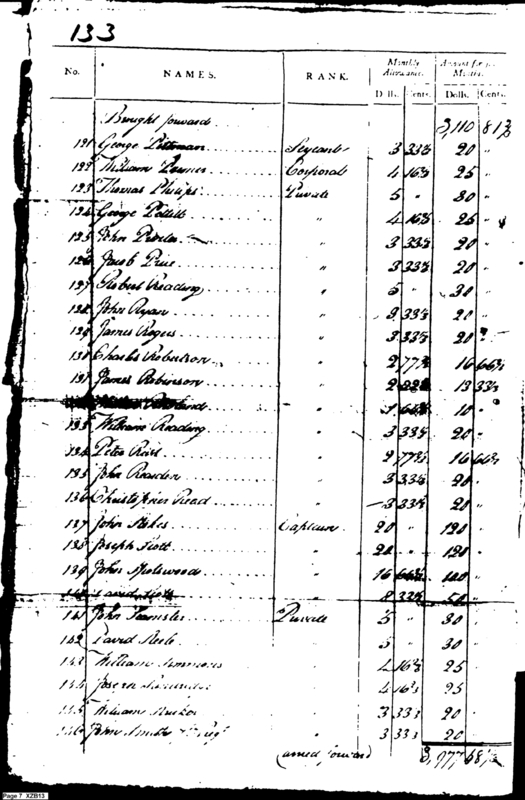 133
No. NAMES. RANK. Monthly Allowance. Amount for Months.
Dolls. Cents. Dolls. Cents.
Brought forward 3,110 81⅔
121 George Pittman Serjeant 3 33⅓ 20 "
122 William Corporal 4 16⅔ 25 "
123 Thomas Philips Private 5 " 30 "
124 George " 4 16⅔ 25 "
125 John " 3 33⅓ 20 "
126 Jacob Price " 3 33⅓ 20 "
127 Robert Reading " 5 " 30 "
128 John Ryan " 3 33⅓ 20 "
129 James Rogers " 3 33⅓ 20 "
130 Charles Robertson " 2 77⅔ 16 66⅔
131 James Robinson " 2 13 33⅓
" 1 66⅔ 10 "
133 William Reading " 3 33⅓ 20 "
134 Peter " 2 77⅔ 16 66⅔
135 John Rearden " 3 33⅓ 20 "
136 Christopher Read " 3 33⅓ 20 "
137 John Stokes Captain 20 " 120 "
138 Joseph Scott " 20 " 120 "
139 John Spotswood " 16 66⅔ 100 "
140 David " 8 33⅓ 50 "
141 John Private 5 " 30 "
142 David Steele " 5 " 30 "
143 William Simmons " 4 16⅔ 25 "
144 Joseph " 4 16⅔ 25 "
145 William " 3 33⅓ 20 "
146 John " 3 33⅓ 20 "
Carried forward 3,977 68⅓
Page 7 XZB13